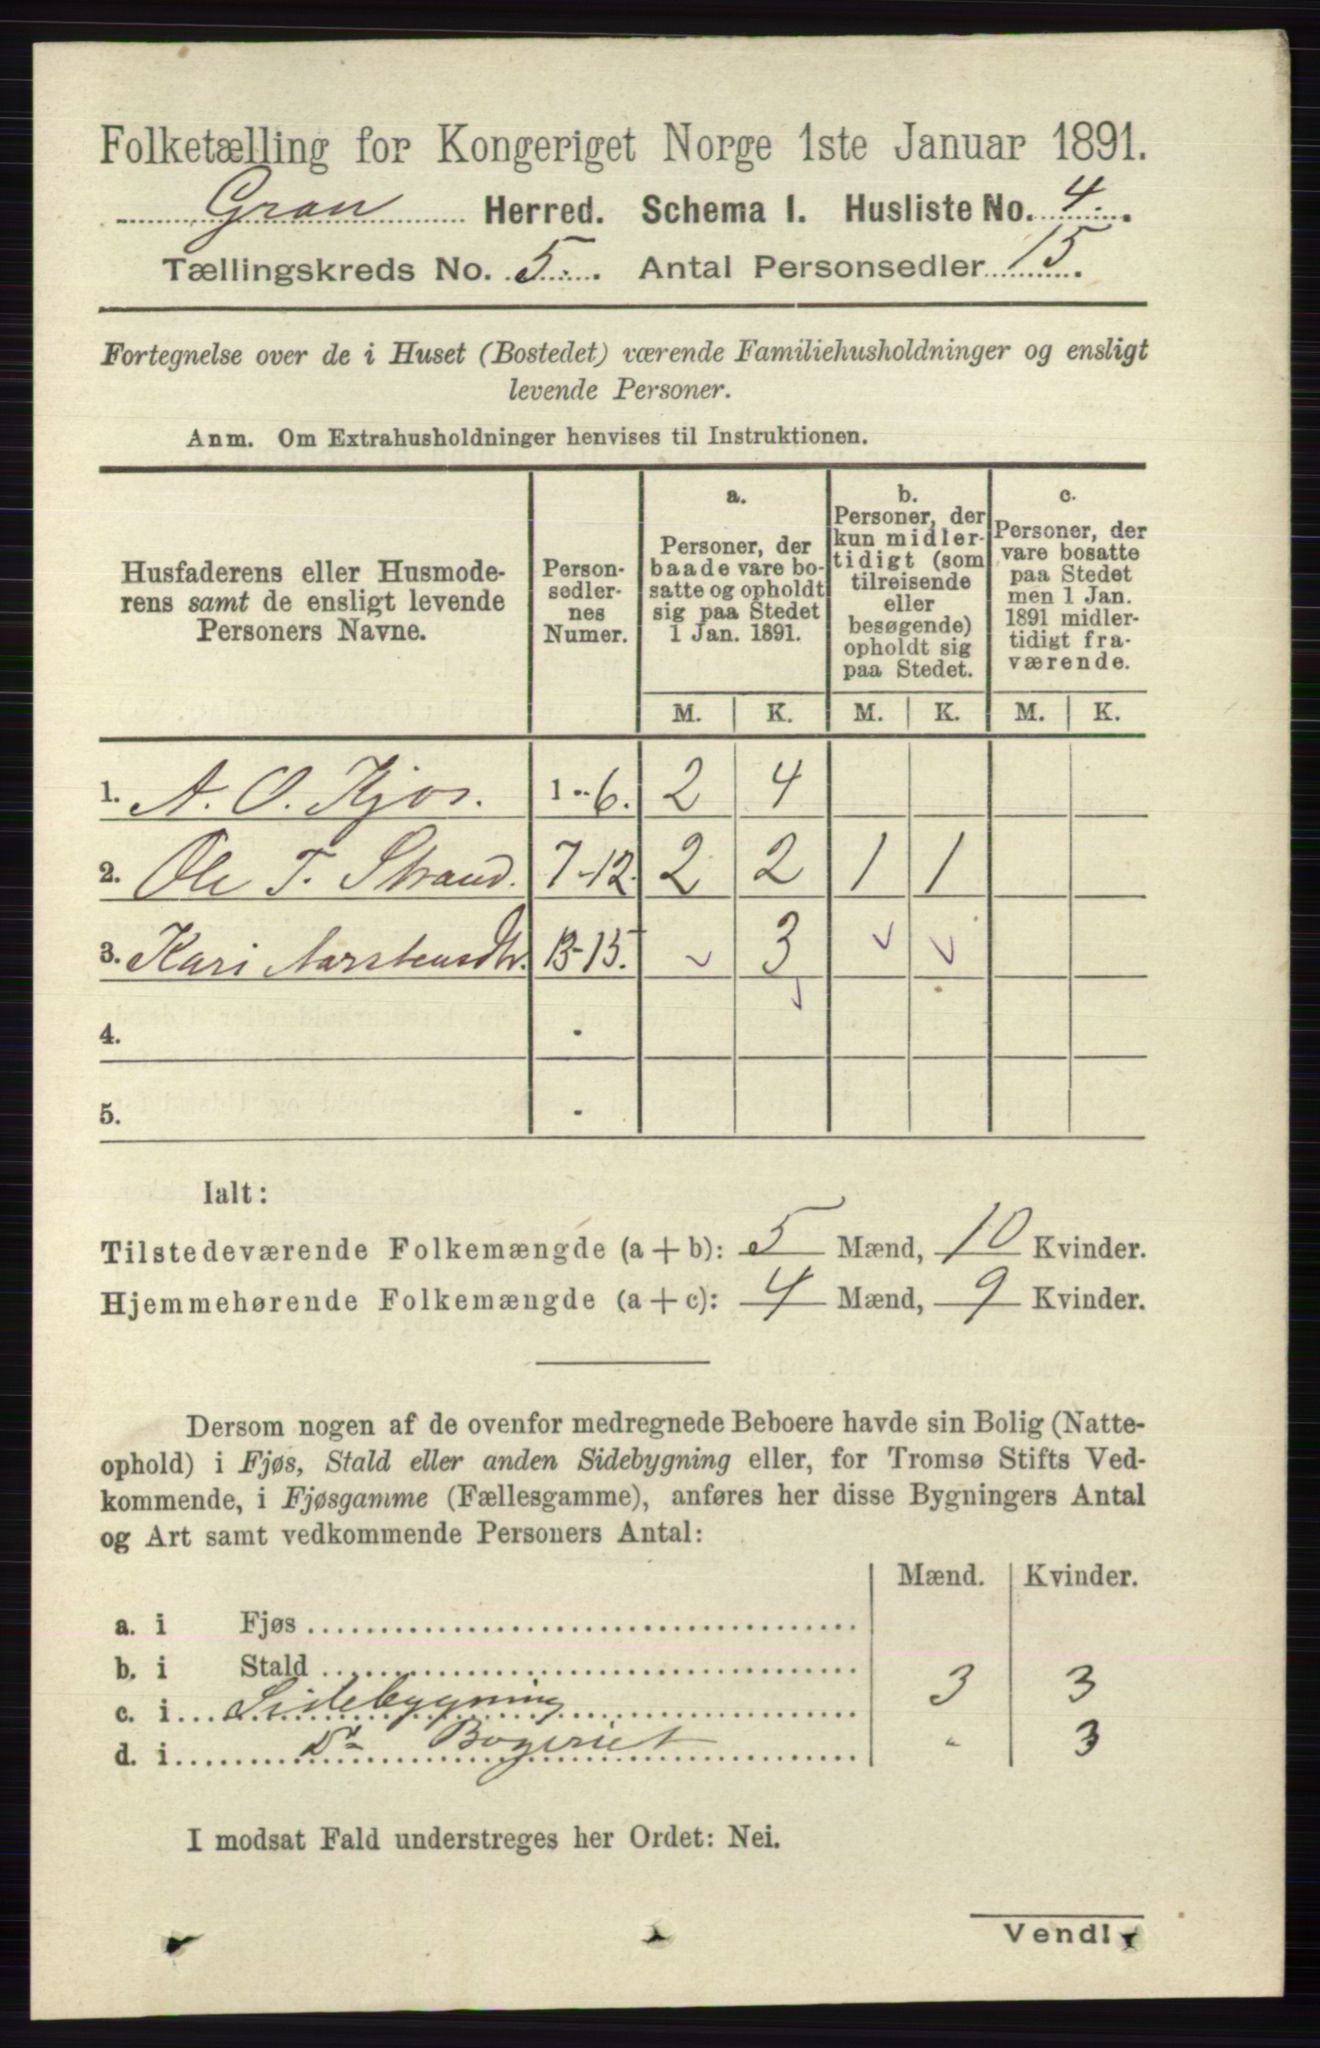 Folketælling for Kongeriget Norge 1ste Januar 1891.
Gran Herred. Schema I. Husliste No. 4.
Tællingskreds No. 5. Antal Personsedler 15.
Fortegnelse over de i Huset (Bostedet) værende Familiehusholdninger og ensligt
levende Personer.
Anm. Om Extrahusholdninger henvises til Instruktionen.
Husfaderens eller Husmode-
rens samt de ensligt levende
Personers Navne.
Person-
sedler-
nes
Numer.
a.
Personer, der
baade vare bo-
satte og opholdt
sig paa Stedet
1 Jan. 1891.
b.
Personer, der
kun midler-
tidigt (som
tilreisende
eller
besøgende)
opholdt sig
paa Stedet.
c.
Personer, der
vare bosatte
paa Stedet
men 1 Jan.
1891 midler-
tidigt fra-
værende.
M. K. M. K. M. K.
1. A. O. Kjos. 1-6. 2 4
2. Ole T. Strand. 7-12. 2 2 1 1
3. Kari Aarstensdtr. 13-15. 3
4. -
5. -
Ialt:
Tilstedeværende Folkemængde (a + b): 5 Mænd, 10 Kvinder.
Hjemmehørende Folkemængde (a + c): 4 Mænd, 9 Kvinder.
Dersom nogen af de ovenfor medregnede Beboere havde sin Bolig (Natte-
ophold) i Fjøs, Stald eller anden Sidebygning eller, for Tromsø Stifts Ved-
kommende, i Fjøsgamme (Fællesgamme), anføres her disse Bygningers Antal
og Art samt vedkommende Personers Antal:
Mænd. Kvinder.
a. i Fjøs
b. i Stald
c. i Sidebygning 3 3
d. i Do Bageriet - 3
I modsat Fald understreges her Ordet: Nei.
Vend!